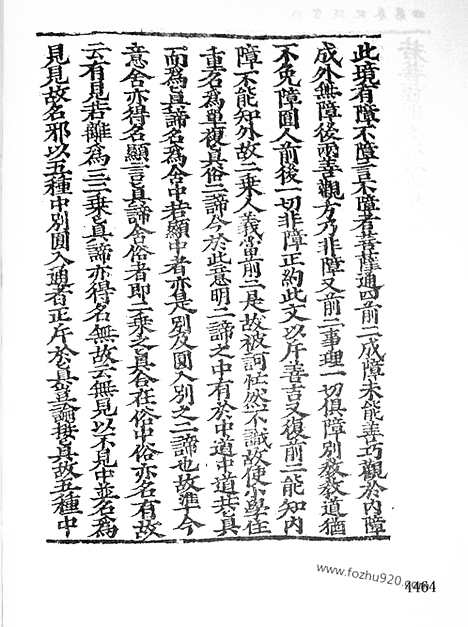 此境有障不障言不障者菩薩通四前二成障未能善巧觀於內障
成外無障後兩善觀方乃非障又前二事理一切俱障別教教道猶
不免障圓人前後一切非障正約此文以斥善吉又復前二能知內
障不能知外故二乘人義當前二是故被訶茫然不識故使小學住
重名為單複真俗二諦今於此意明二諦之中有於中道中道共真
而為真諦名為含中若顯中者亦是別及圓入別之二諦也故準今
意含亦得名顯言真諦含俗者即二乘之真含在俗中俗亦名有故
云有見若離為三二乘真諦亦得名無故云無見以不見中並名為
見見故名邪以五種中別圓入通者正斥於真豈論投真故五種中
www.fozhu920.com
4464